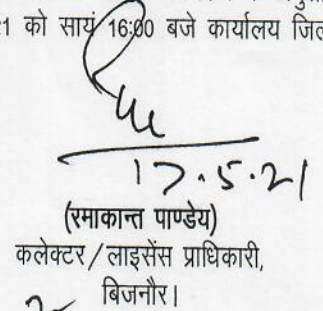 21 को सायं 16:00 बजे कार्यालय जिल
17.5.21
(रमाकान्त पाण्डेय)
कलेक्टर/लाइसेंस प्राधिकारी,
बिजनौर।